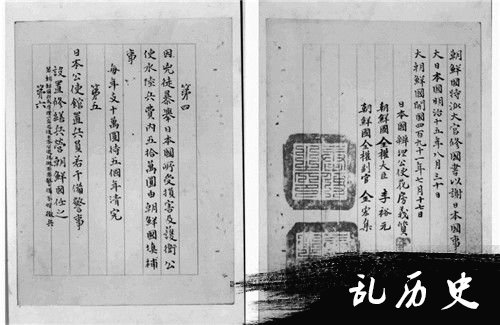 第四
因兇徒暴擧日本國所受損害及護衛公
使水陸兵費內五拾萬圓由朝鮮國填補
事
每年支十萬圓待五個年清完
第五
日本公使館置兵員若干備警事
設置修繕兵營朝鮮國任之
第六
朝鮮國特派大官修國書以謝日本國事
大日本國明治十五年八月三十日
大朝鮮國開國四百九十一年七月十七日
日本國辨理公使花房義質
朝鮮國全權大臣 李裕元
朝鮮國全權副官 金宏集
乱历史